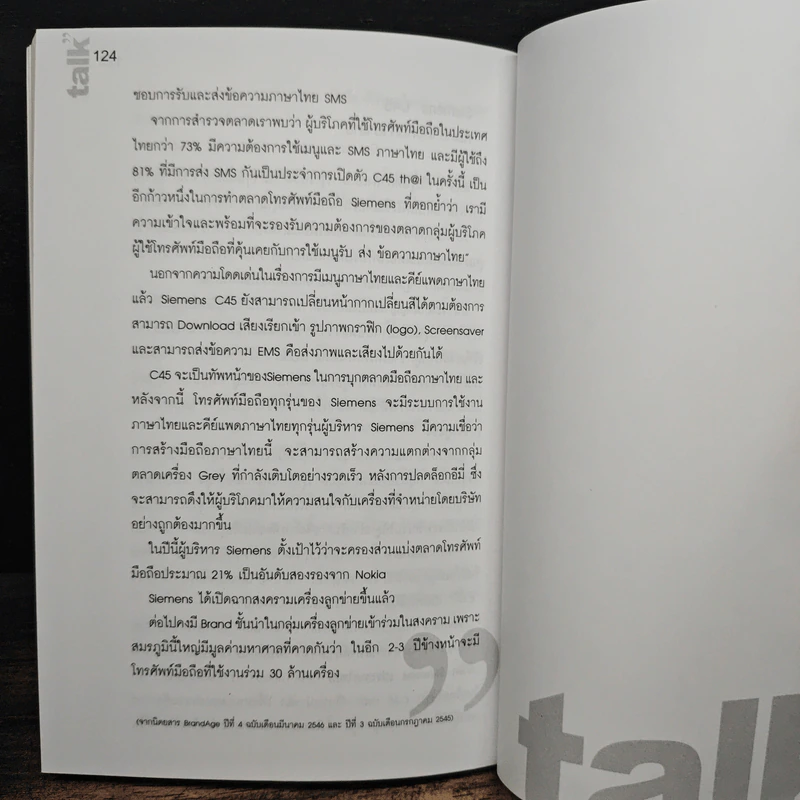 talk"
124
ชอบการรับและส่งข้อความภาษาไทย SMS
จากการสำรวจตลาดเราพบว่า ผู้บริโภคที่ใช้โทรศัพท์มือถือในประเทศ
ไทยกว่า 73% มีความต้องการใช้เมนูและ SMS ภาษาไทย และมีผู้ใช้ถึง
81% ที่มีการส่ง SMS กันเป็นประจำการเปิดตัว C45 th@i ในครั้งนี้ เป็น
อีกก้าวหนึ่งในการทำตลาดโทรศัพท์มือถือ Siemens ที่ตอกย้ำว่า เรามี
ความเข้าใจและพร้อมที่จะรองรับความต้องการของตลาดกลุ่มผู้บริโภค
ผู้ใช้โทรศัพท์มือถือที่คุ้นเคยกับการใช้เมนูรับ ส่ง ข้อความภาษาไทย"
นอกจากความโดดเด่นในเรื่องการมีเมนูภาษาไทยและคีย์แพดภาษาไทย
แล้ว Siemens C45 ยังสามารถเปลี่ยนหน้ากากเปลี่ยนสีได้ตามต้องการ
สามารถ Download เสียงเรียกเข้า รูปภาพกราฟิก (logo), Screensaver
และสามารถส่งข้อความ EMS คือส่งภาพและเสียงไปด้วยกันได้
C45 จะเป็นทัพหน้าของSiemens ในการบุกตลาดมือถือภาษาไทย และ
หลังจากนี้ โทรศัพท์มือถือทุกรุ่นของ Siemens จะมีระบบการใช้งาน
ภาษาไทยและคีย์แพดภาษาไทยทุกรุ่นผู้บริหาร Siemens มีความเชื่อว่า
การสร้างมือถือภาษาไทยนี้ จะสามารถสร้างความแตกต่างจากกลุ่ม
ตลาดเครื่อง Grey ที่กำลังเติบโตอย่างรวดเร็ว หลังการปลดล็อกอีมี่ ซึ่ง
จะสามารถดึงให้ผู้บริโภคมาให้ความสนใจกับเครื่องที่จำหน่ายโดยบริษัท
อย่างถูกต้องมากขึ้น
ในปีนี้ผู้บริหาร Siemens ตั้งเป้าไว้ว่าจะครองส่วนแบ่งตลาดโทรศัพท์
มือถือประมาณ 21% เป็นอันดับสองรองจาก Nokia
Siemens ได้เปิดฉากสงครามเครื่องลูกข่ายขึ้นแล้ว
ต่อไปคงมี Brand ชั้นนำในกลุ่มเครื่องลูกข่ายเข้าร่วมในสงคราม เพราะ
สมรภูมินี้ใหญ่มีมูลค่ามหาศาลที่คาดกันว่า ในอีก 2-3 ปีข้างหน้าจะมี
โทรศัพท์มือถือที่ใช้งานร่วม 30 ล้านเครื่อง
"
(จากนิตยสาร BrandAge ปีที่ 4 ฉบับเดือนมีนาคม 2546 และ ปีที่ 3 ฉบับเดือนกรกฎาคม 2545)
talk